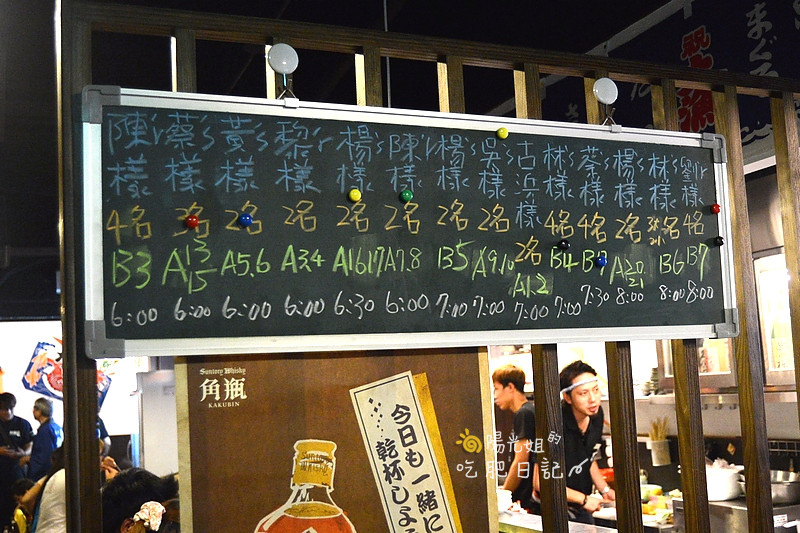 陳's 蔡's 黃's 黎'r 楊's 陳'r 楊's 吳's 古浜 林's 蔡's 楊's 林's 劉'r
様 様 様 様 様 様 様 様 様 様 様 様 様 様
4名 3名 2名 2名 2名 2名 2名 2名 2名 4名 4名 2名 名 4名
B3 A13 15 A5.6 A3.4 A16.17 A7.8 B5 A9.10 A1.2 B4 A20 21 B6 B7
6:00 6:00 6:00 6:00 6:30 6:00 7:00 7:00 7:00 7:00 7:30 8:00 8:00 8:00
Suntory Whisky
角瓶
KAKUBIN
今日も一緒に
乾杯しよ
まぐ
陽光姐的
吃肥日記